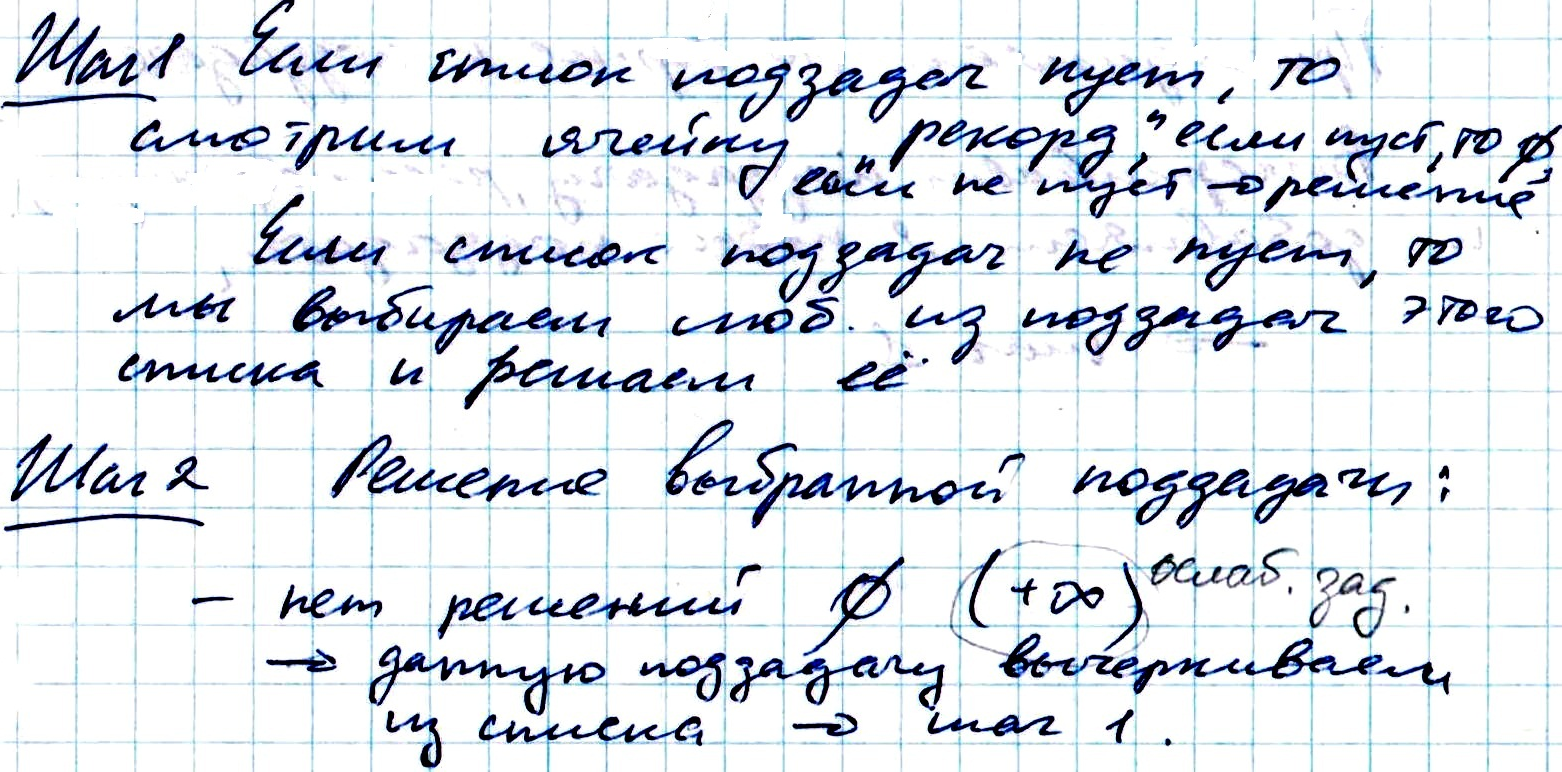 Шаг 1 Если список подзадач пуст, то
смотрим ячейку „рекорд", если пуст, то ∅,
если не пуст → решение
Если список подзадач не пуст, то
мы выбираем люб. из подзадач этого
списка и решаем её
Шаг 2 Решение выбранной подзадачи:
– нет решений ∅ (+∞) ослаб. зад.
→ данную подзадачу вычеркиваем
из списка → шаг 1.